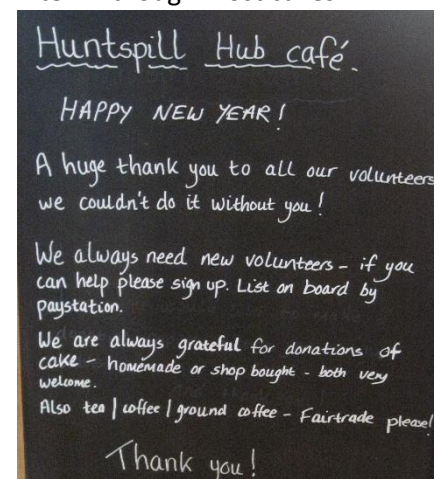 Huntspill Hub café.
HAPPY NEW YEAR!
A huge thank you to all our volunteers
we couldn't do it without you!
We always need new volunteers - if you
can help please sign up. List on board by
paystation.
We are always grateful for donations of
cake - homemade or shop bought - both very
welcome.
Also tea | coffee | ground coffee - Fairtrade please!
Thank you!